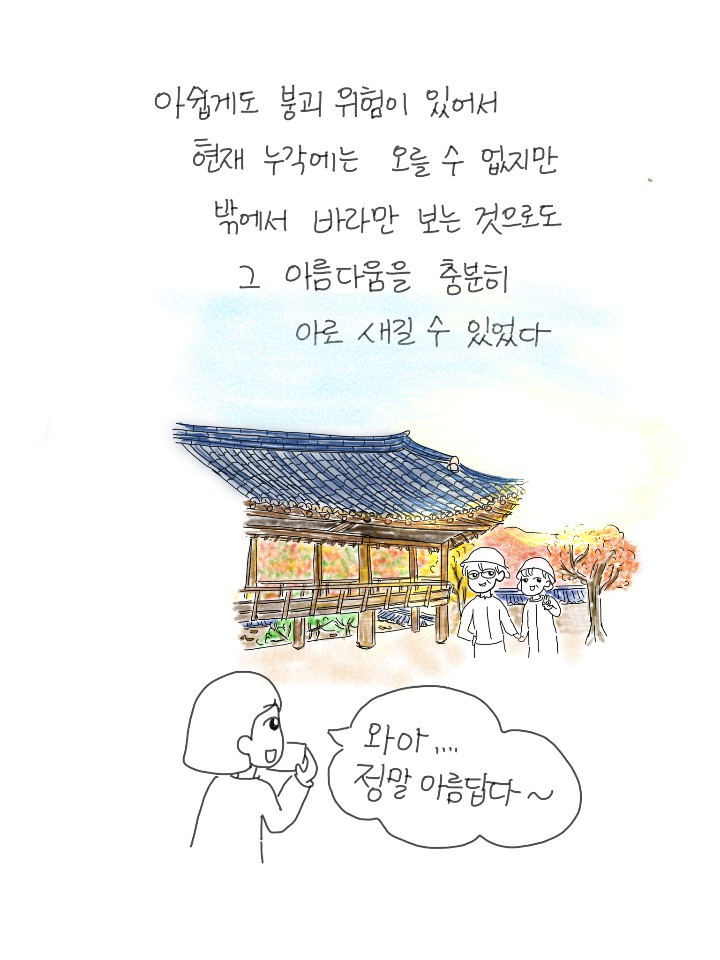 아쉽게도 붕괴 위험이 있어서
현재 누각에는 오를 수 없지만
밖에서 바라만 보는 것으로도
그 아름다움을 충분히
아로 새길 수 있었다
와아....
정말 아름답다~